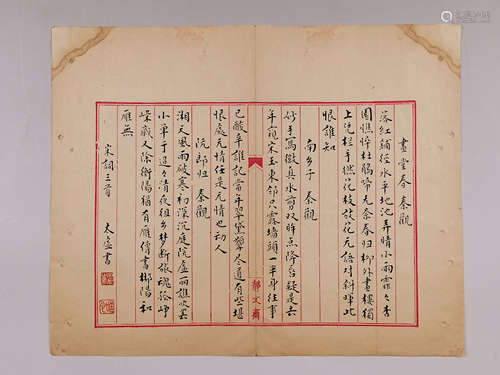 畫堂春 秦觀
落红鋪徑水平池弄晴小雨霏々杏
園憔悴杜鵑啼无奈春归柳外畫樓獨
上凭栏手撚花枝放花无語对斜暉此
恨誰知
南乡子 秦觀
妙手寫徽真水剪双眸点降唇疑是去
年窺宋玉東邻只露墙頭一半身往事
已酸辛誰記當年翠黛顰尽道有些堪
恨處无情任是无情也动人
阮郎归 秦觀
湘天風雨破寒初深沉庭院虛丽譙吹罢
小單于迢々清夜徂乡梦断旅魂孤峥
嵘歲又除衡陽猶有雁傳書郴陽和
雁無
宋詞三首 太虛書
静文斋